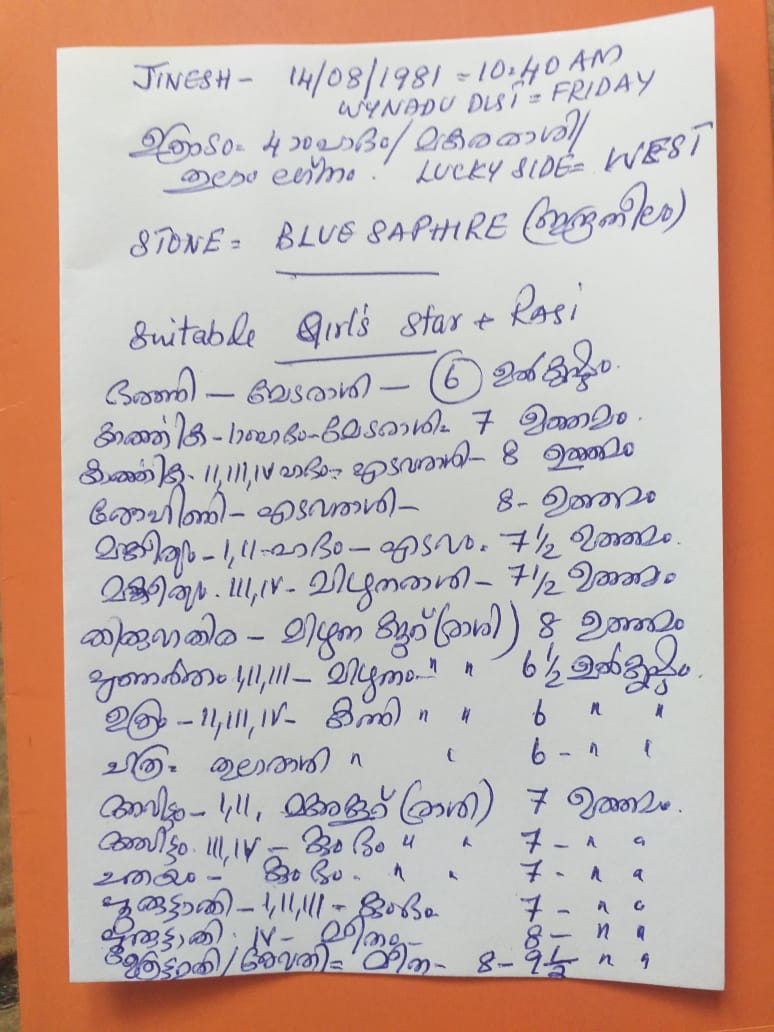 JINESH - 14/08/1981 = 10.40 AM
WYNADU DIST = FRIDAY
ഉത്രാടം = 4 ാംപാദം / മകരരാശി /
തുലാം ലഗ്നം. LUCKY SIDE = WEST
STONE = BLUE SAPHIRE (ഇന്ദ്രനീലം)
Suitable Girl's Star + Rasi
ഭരണി - മേടരാശി - 6 ഉൽകൃഷ്ടം.
കാർത്തിക - 1ാംപാദം - മേടരാശി = 7 ഉത്തമം.
കാർത്തിക - II, III, IV പാദം = എടവരാശി - 8 ഉത്തമം
രോഹിണി - എടവരാശി - 8 - ഉത്തമം
മകീര്യം - I, II - പാദം - എടവം = 7 1/2 ഉത്തമം.
മകീര്യം . III, IV - മിഥുനരാശി - 7 1/2 ഉത്തമം
തിരുവാതിര - മിഥുന കൂറ് (രാശി) 8 ഉത്തമം
പുണർതം I, II, III - മിഥുനം - " " 6 1/2 ഉൽകൃഷ്ടം.
ഉത്രം - II, III, IV - കന്നി " " 6 " "
ചിത്ര = തുലാരാശി " " 6 - " "
അവിട്ടം - I, II, മകരകൂറ് (രാശി) 7 ഉത്തമം.
അവിട്ടം. III, IV - കുംഭം " " 7 - " "
ചതയം - കുംഭം - " " 7 - " "
പൂരുട്ടാതി - I, II, III - കുംഭം 7 - " "
പൂരുട്ടാതി . IV - മീനം - 8 - " "
ഉത്രട്ടാതി / രേവതി = മീനം - 8 - 9 1/2 " "